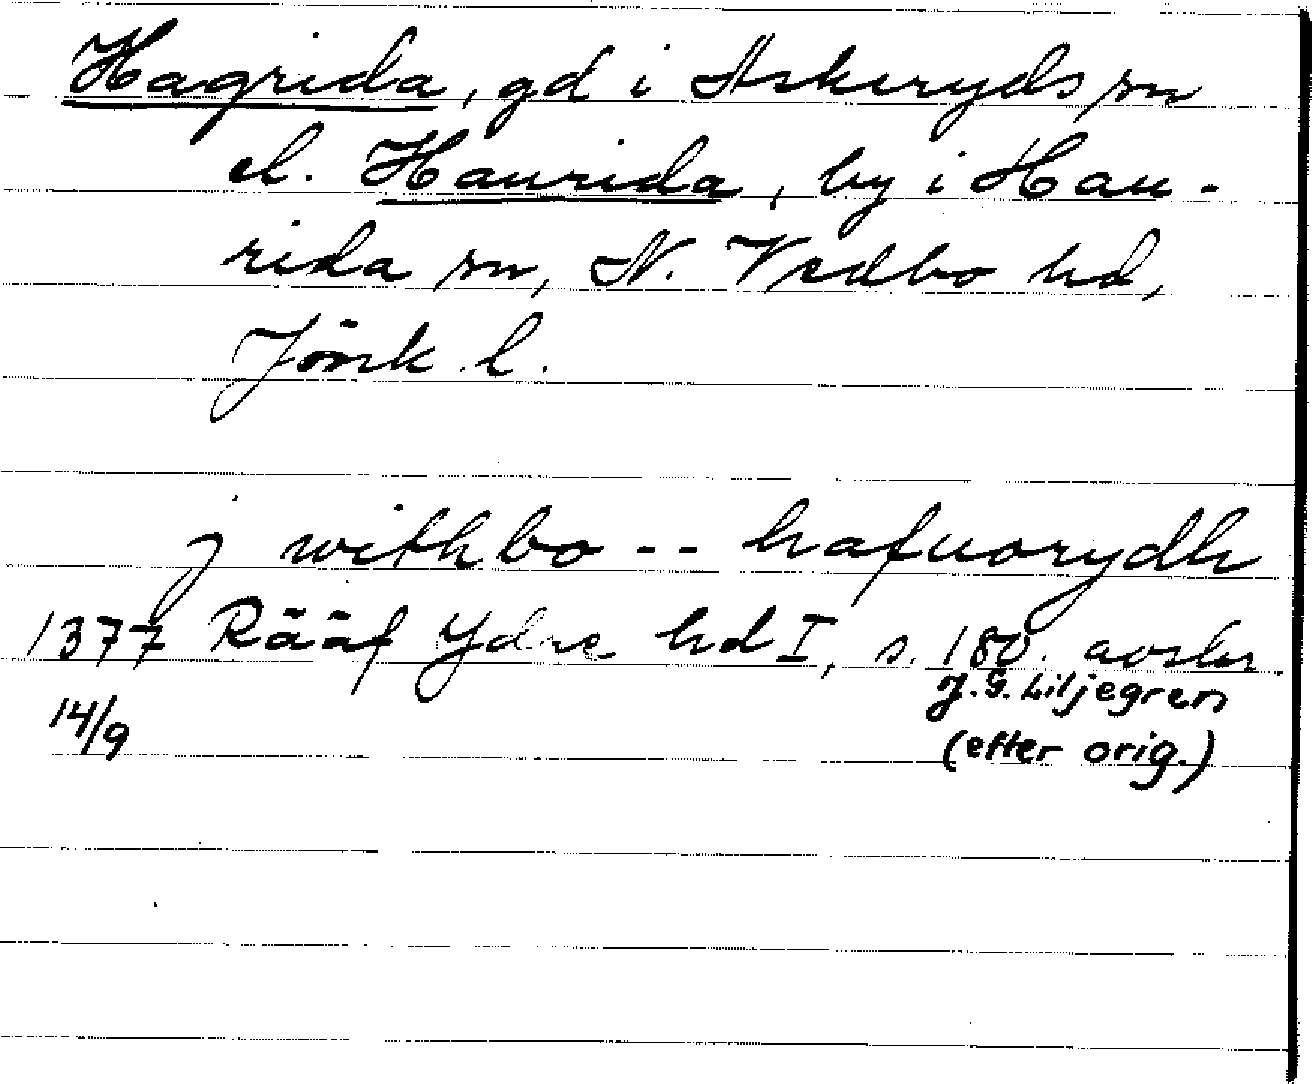 Hagrida, gd i Askeryds sn
el. Haurida, by i Hau-
rida sn, N. Vedbo hd,
Jönk. l.
j withbo -- hafuorydh
1377 Rääf Ydre hd I, s. 180. avskr.
14/9 J. G. Liljegren
(efter orig.)